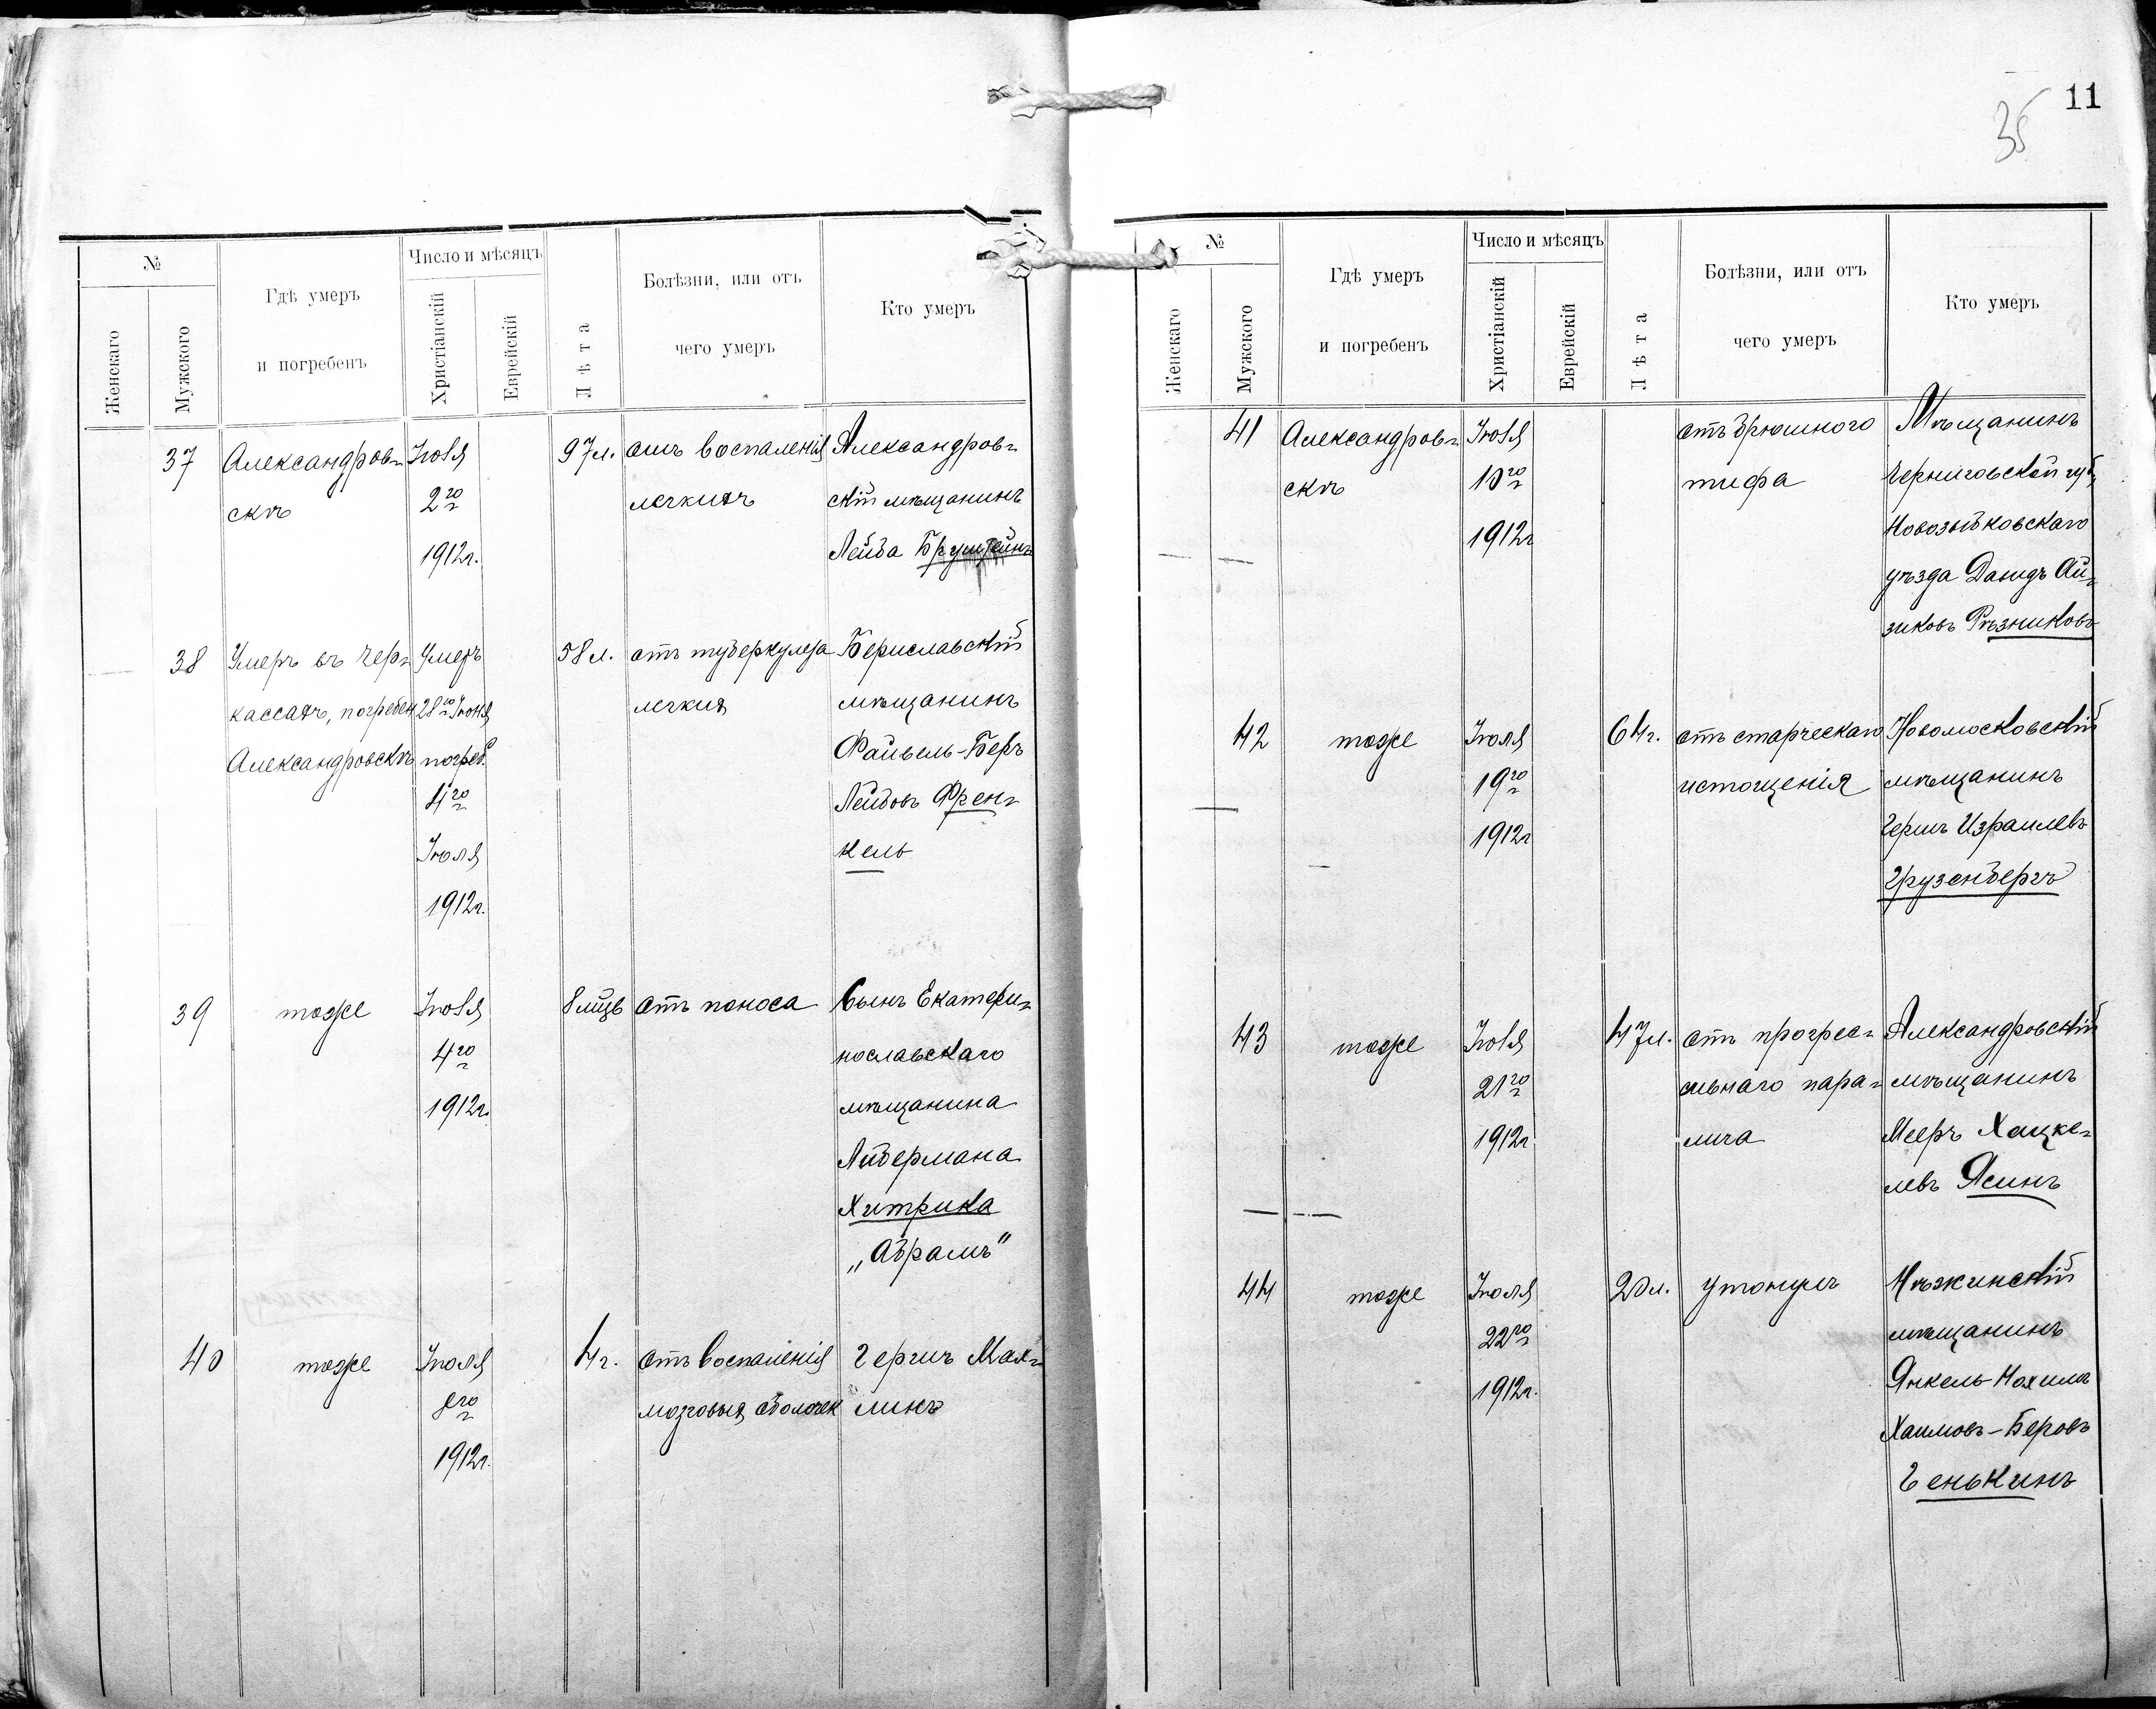 11
35
№
Женскаго
Мужского
Гдѣ умеръ
и погребенъ
Число и мѣсяцъ
Христіанскій
Еврейскій
Лѣта
Болѣзни, или отъ
чего умеръ
Кто умеръ
37
Александров-
скъ
Іюля
2го
1912г.
97л.
отъ воспаленія
легкихъ
Александров-
скій мѣщанинъ
Лейба
38
Умеръ въ Чер-
кассахъ, погребен
Александровскѣ
Умеръ
28го Іюня
погреб.
4го
Іюля
1912г.
58л.
отъ туберкулеза
легкихъ
Бериславскій
мѣщанинъ
Файвель-Беръ
Лейбовъ Френ-
кель
39
тоже
Іюля
4го
1912г.
8 мцъ
отъ поноса
Сынъ Екатери-
нославскаго
мѣщанина
Либермана
Хитрика
„Абрамъ"
40
тоже
Іюля
8го
1912г.
4г.
отъ воспаленія
мозговыхъ оболочек
Гершъ Мах-
линъ
№
Женскаго
Мужского
Гдѣ умеръ
и погребенъ
Число и мѣсяцъ
Христіанскій
Еврейскій
Лѣта
Болѣзни, или отъ
чего умеръ
Кто умеръ
41
Александров-
скъ
Іюля
10го
1912г
отъ брюшного
тифа
Мѣщанинъ
Черниговской губ.,
Новозыбковскаго
уѣзда Давидъ Ай-
зиковъ Рѣзниковъ
42
тоже
Іюля
19го
1912г
64г.
отъ старческаго
истощенія
Новомосковскій
мѣщанинъ
Гершъ Израилевъ
Грузенбергъ
43
тоже
Іюля
21го
1912г
47л.
отъ прогрес-
сивнаго пара-
лича
Александровскій
мѣщанинъ
Мееръ Хацке-
левъ Ясинъ
44
тоже
Іюля
22го
1912г.
20л.
утонулъ
Нѣжинскій
мѣщанинъ
Янкель-Нохимъ
Хаимовъ-Беровъ
Генькинъ